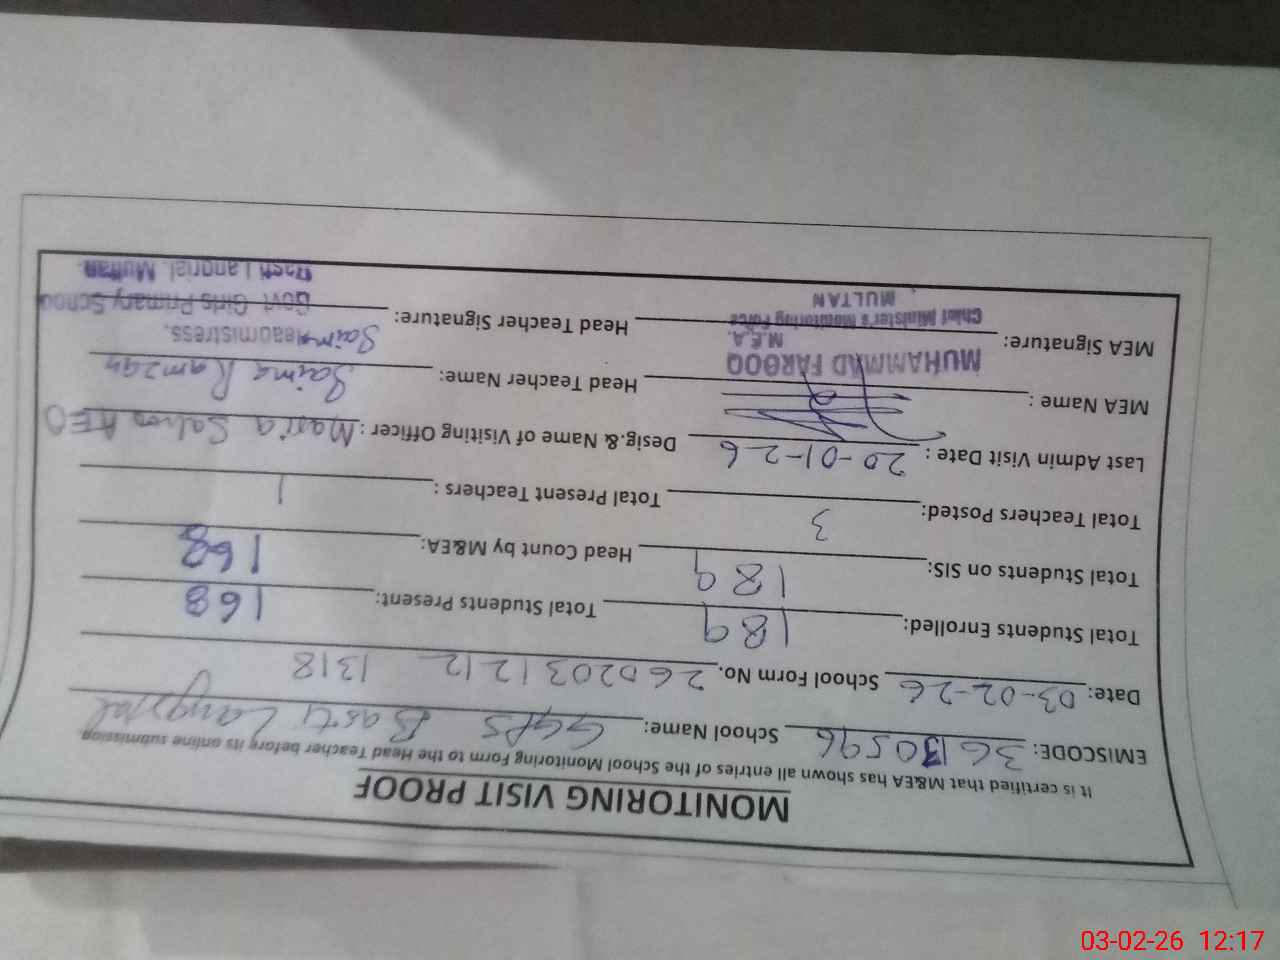 MONITORING VISIT PROOF
It is certified that M&EA has shown all entries of the School Monitoring Form to the Head Teacher before its online submission
EMISCODE: 36130596 School Name: GGPS Basti Langrial
Date: 03-02-26 School Form No. 2602031212 1318
Total Students Enrolled: 189 Total Students Present: 168
Total Students on SIS: 189 Head Count by M&EA: 168
Total Teachers Posted: 3 Total Present Teachers : 1
Last Admin Visit Date : 20-01-26 Desig.& Name of Visiting Officer : Maria AEO
MEA Name : Head Teacher Name: Saima Ramzan
MUHAMMAD FAROOQ
M.E.A.
MEA Signature: Chief Minister's Monitoring Force
MULTAN
Head Teacher Signature: Saima
Headmistress.
Govt. Girls Primary School
Basti Langrial, Multan
03-02-26 12:17